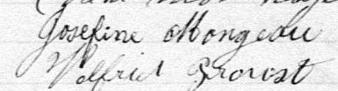 Josefine Mongeau
Wilfrid Provost